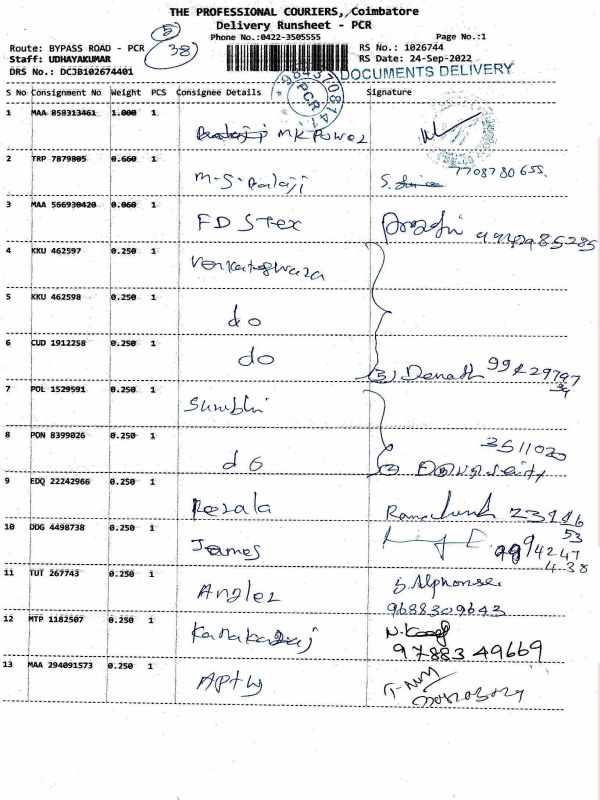 THE PROFESSIONAL COURIERS, Coimbatore
Delivery Runsheet - PCR
Phone No.:0422-3505555 Page No.:1
Route: BYPASS ROAD - PCR RS No.: 1026744
Staff: UDHAYAKUMAR RS Date: 24-Sep-2022
DRS No.: DCJB102674401
38
DOCUMENTS DELIVERY
PCR
S No Consignment No Weight PCS Consignee Details Signature
1 MAA 858313461 1.000 1 MK Power
2 TRP 7879805 0.660 1 M-S-Balaji 7708780655.
3 MAA 566930420 0.060 1 FDS Tex
4 KKU 462597 0.250 1 Venkateswara
5 KKU 462598 0.250 1 do
6 CUD 1912258 0.250 1 do (3)
7 POL 1529591 0.250 1
8 PON 8399026 0.250 1 do 3511020
9 EDQ 22242966 0.250 1 Kerala
10 DDG 4498738 0.250 1 James
11 TUT 267743 0.250 1 Angler S. Alphonse
9688309643
12 MTP 1182507 0.250 1 Kanakaraj
9788349669
13 MAA 294091573 0.250 1